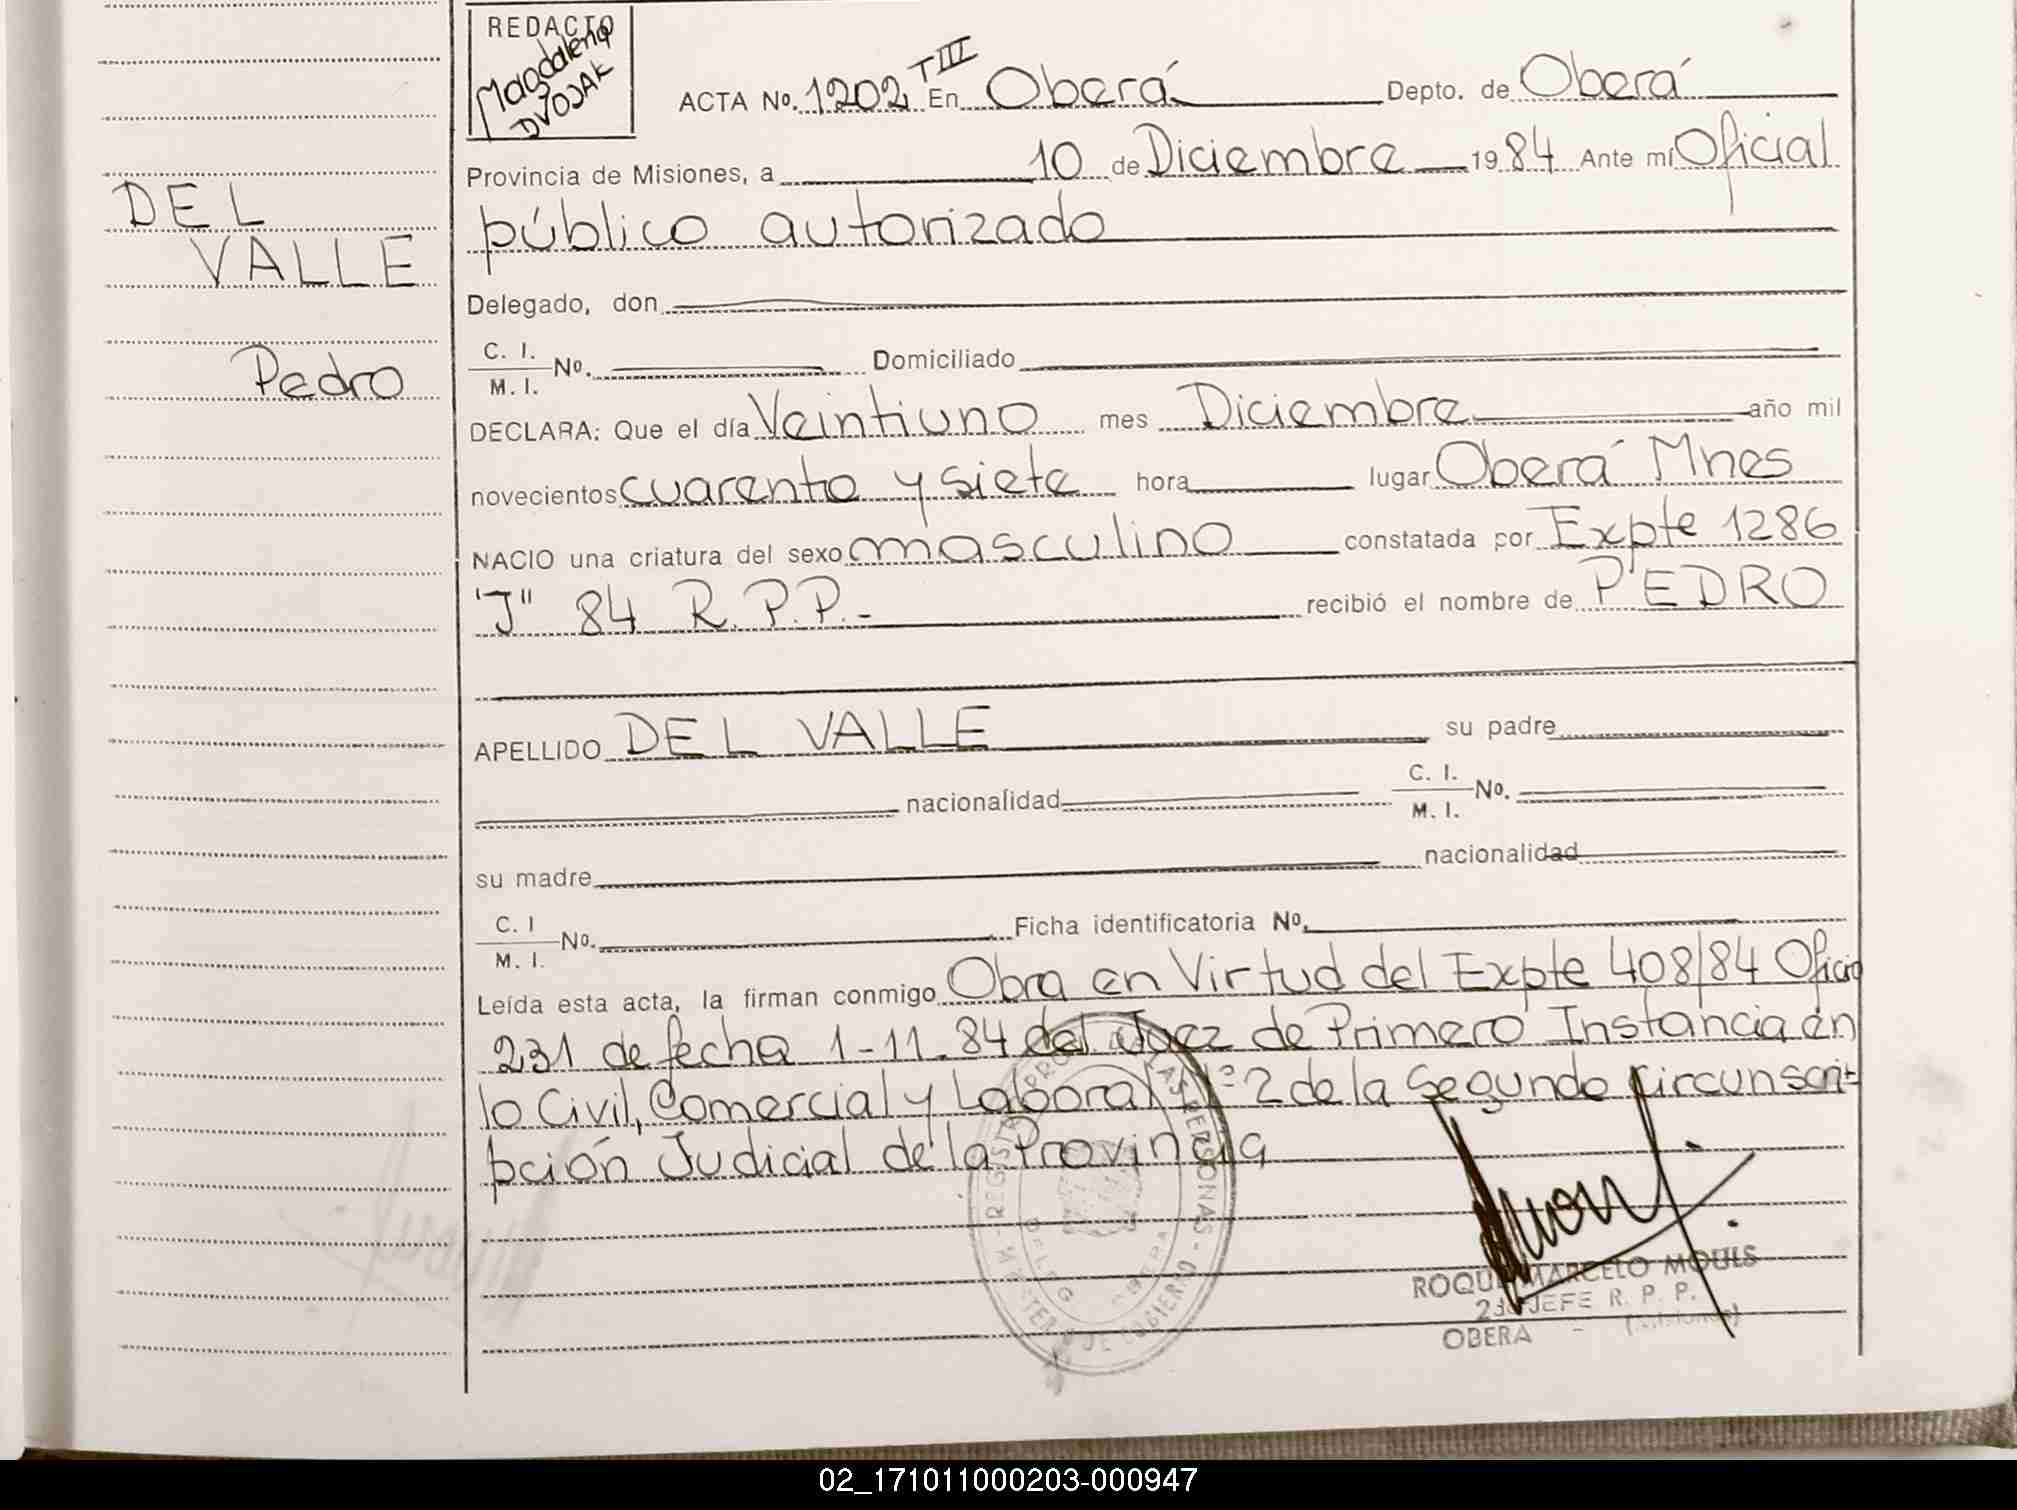 REDACTO
Magdalena
DVOJAK
ACTA No. 1202 TIII En Oberá Depto. de Oberá
Provincia de Misiones, a 10 de Diciembre 1984 Ante mí Oficial
público autorizado
DEL
VALLE
Delegado, don
Pedro
C. I.
M. I. No. Domiciliado
DECLARA: Que el día Veintiuno mes Diciembre año mil
novecientos cuarenta y siete hora lugar Oberá Mnes
NACIO una criatura del sexo masculino constatada por Expte 1286
"J" 84 R.P.P.- recibió el nombre de PEDRO
APELLIDO DEL VALLE su padre
nacionalidad C. I. M. I. No.
su madre nacionalidad
C. I M. I. No. Ficha identificatoria No.
Leída esta acta, la firman conmigo Obra en Virtud del Expte 408/84 Oficio
231 de fecha 1-11-84 del Juez de Primera Instancia en
lo Civil, Comercial y Laboral Nº 2 de la Segunda Circunscri-
pción Judicial de la Provincia
ROQUE MARCELO MOULS
2do JEFE R. P. P.
OBERA - (Misiones)
02_171011000203-000947